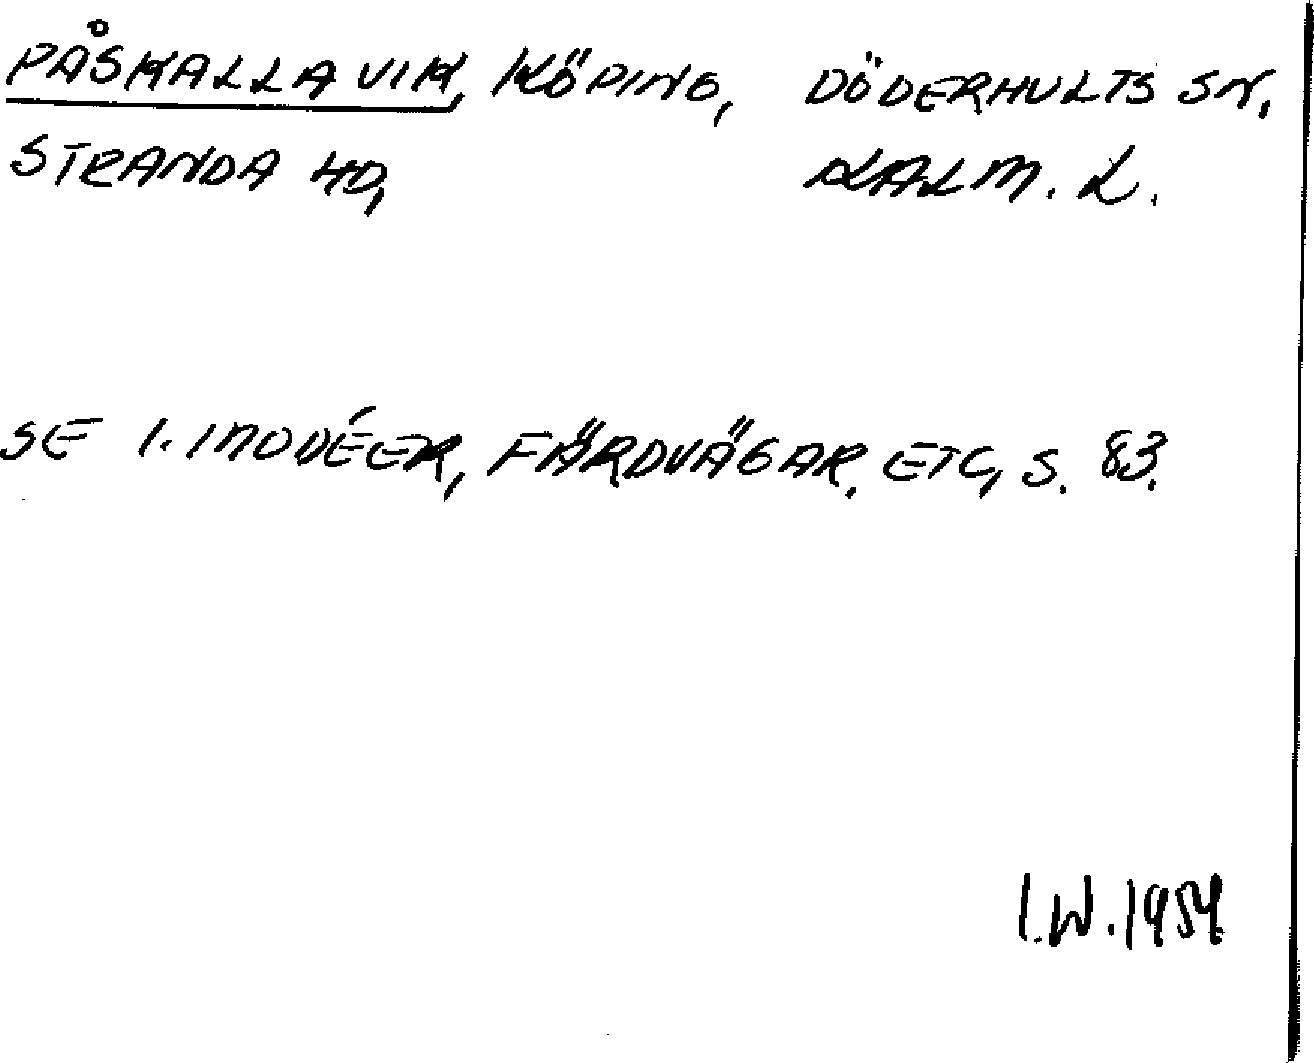 PÅSKALLAVIK, KÖPING, DÖDERHULTS SN,
STRANDA HD, KALM. L.
SE I. MODÉER, FÄRDVÄGAR, ETC, S. 83.
I.W. 1954